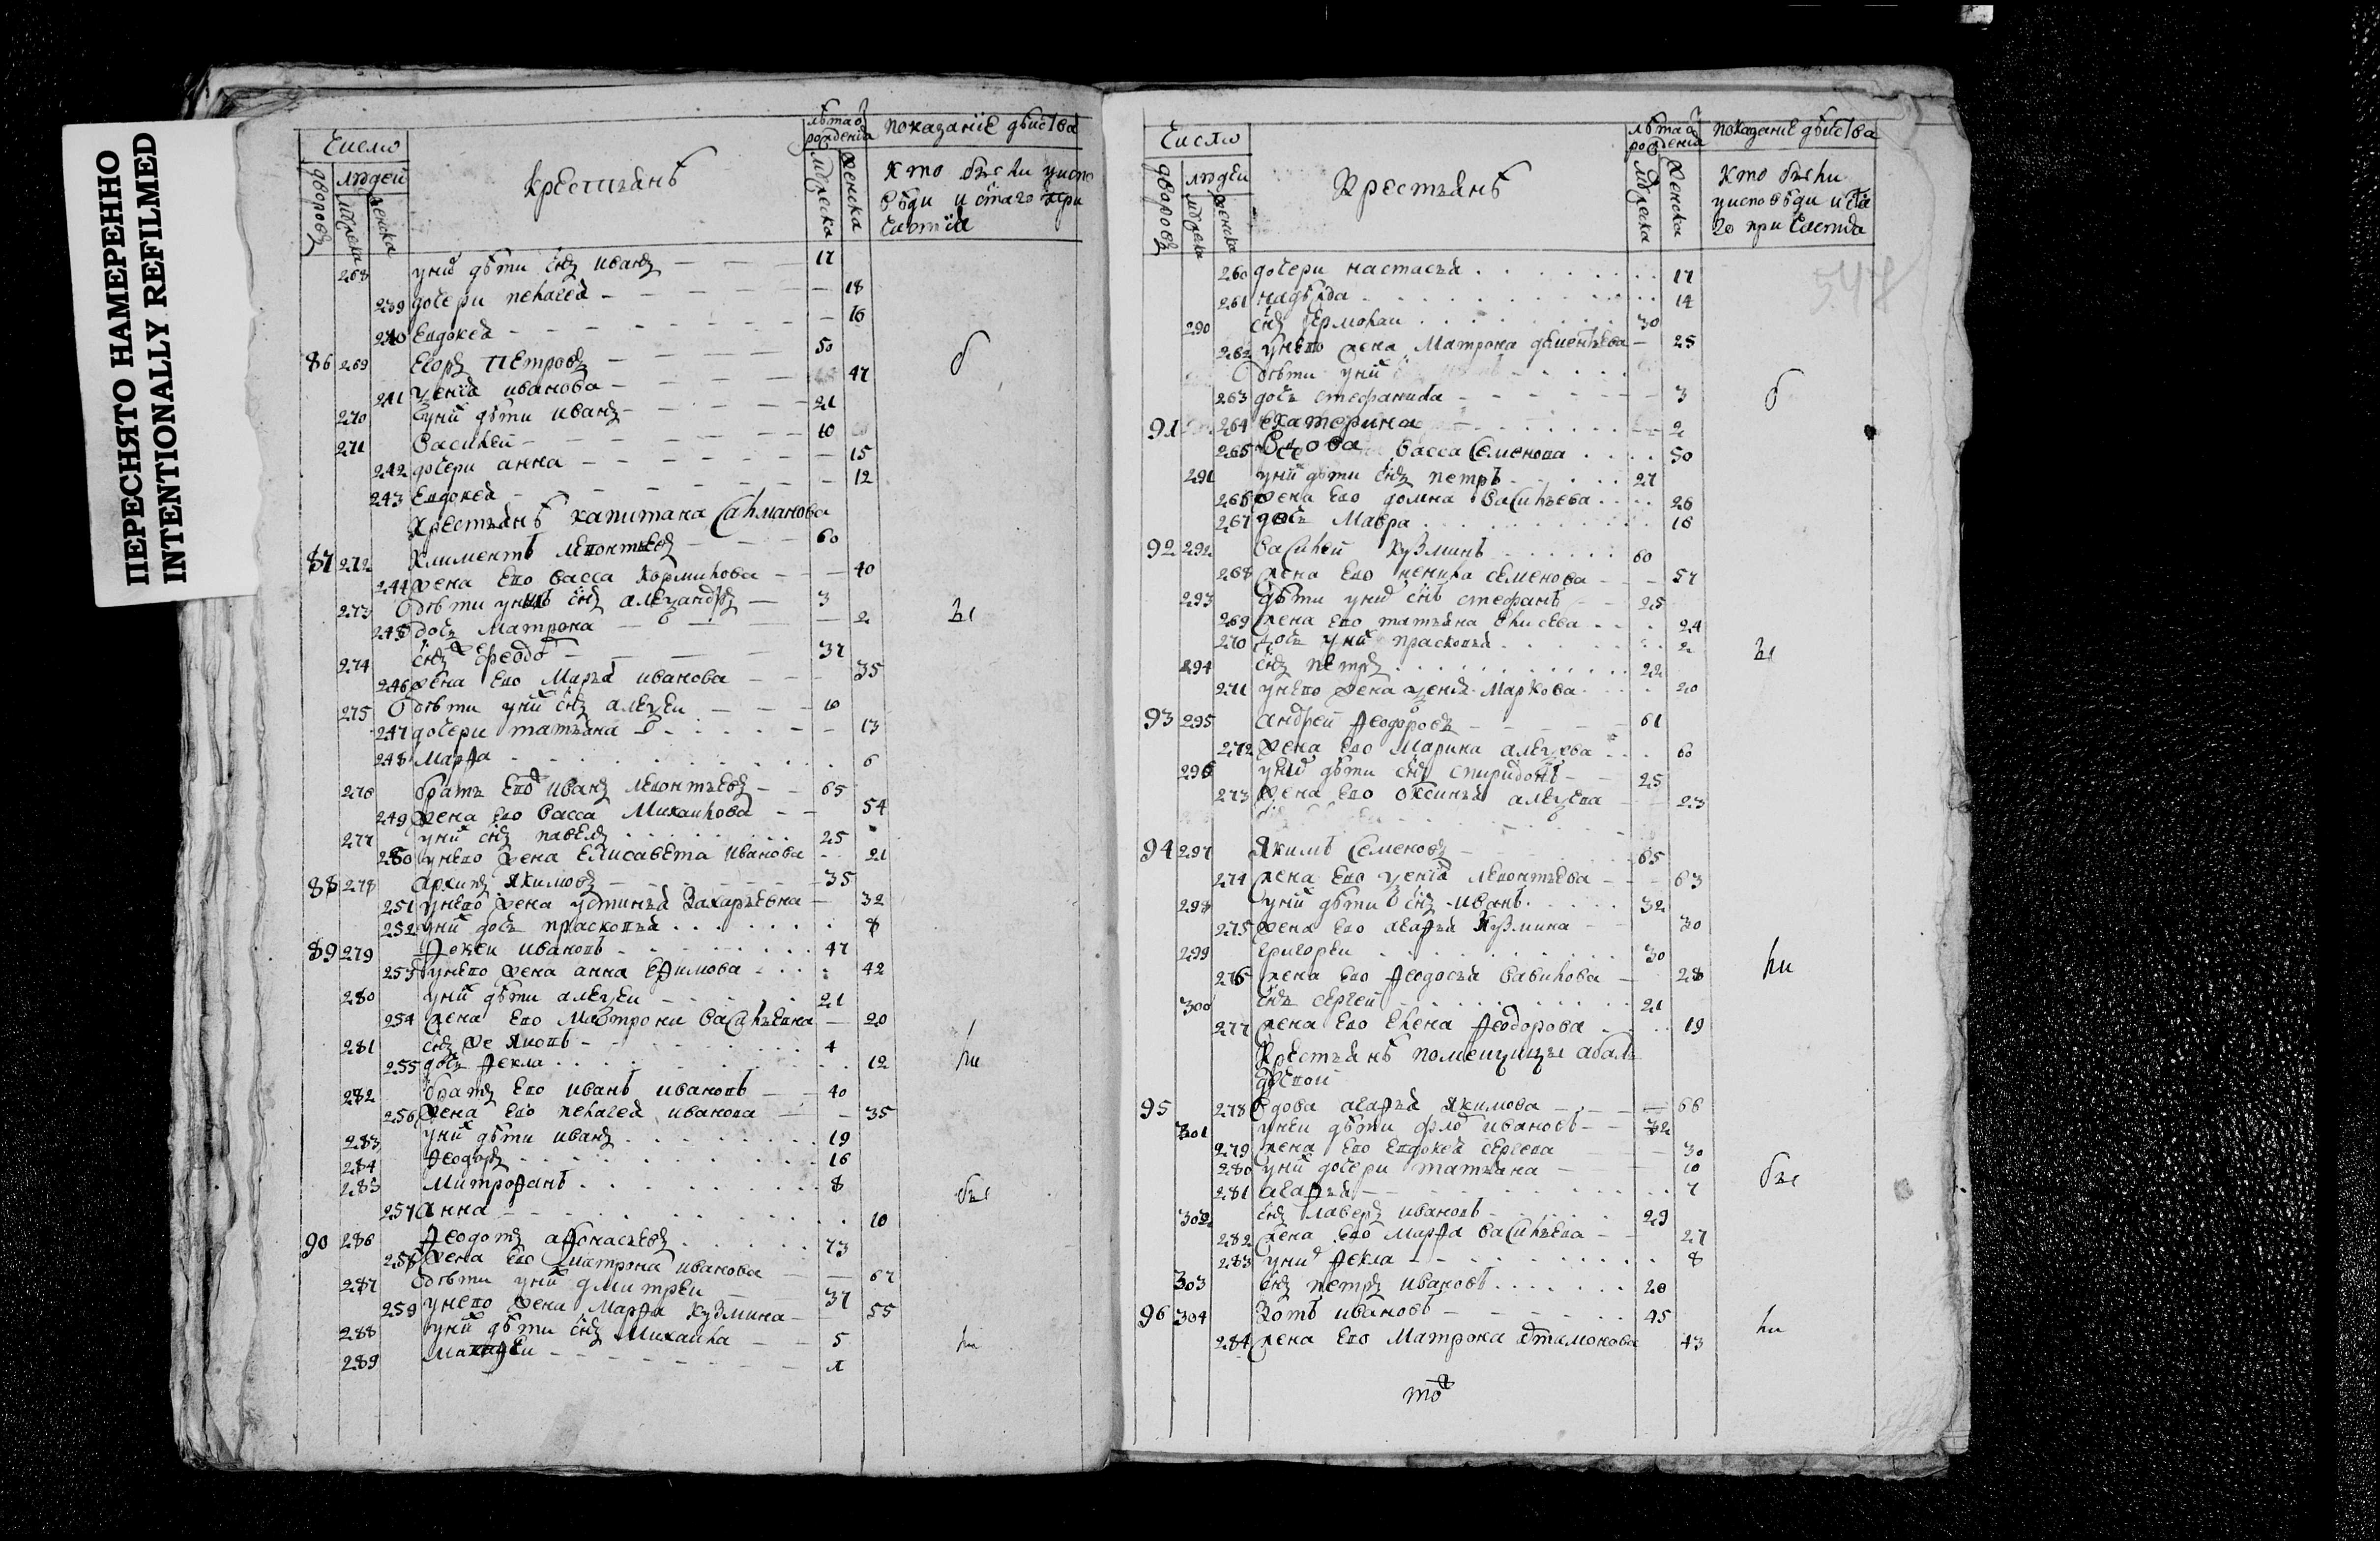 ПЕРЕСНЯТО НАМЕРЕННО
INTENTIONALLY REFILMED
Число
дворовъ
людей
мужеска
женска
крестьянъ
лѣта от рожденїа
мужеска
женска
показанїе дѣйства
кто были у испо
вѣди и стаго при
частїа
268 у нихъ дѣти снъ иванъ 17
239 дочери пелагеа 18
240 евдокеа 16
86 269 егоръ петровъ 50
241 ѯенїа иванова 47
270 у нихъ дѣти иванъ 21
271 василей 10
242 дочери анна 15
243 евдокеа 12
крестьянъ капитана салманова
87 272 климентъ леонтьевъ 60
244 жена его васса кормилова 40
273 дѣти у нихъ снъ алеѯандръ 3
245 дочь матрона 2
274 снъ феодо 37
246 жена его марьа иванова 35
275 дѣти у нихъ снъ алеѯеи 10
247 дочери татьяна 13
248 марѳа 6
276 братъ его иванъ леонтьевъ 65
249 жена его васса михаилова 54
277 у нихъ снъ павелъ 25
250 у него жена елисавета иванова 21
88 278 архипъ якимовъ 35
251 у него жена устинья захарьевна 32
252 у нихъ дочь прасковьа 8
89 279 ѳокеи ивановъ 47
253 у него жена анна еѳимова 42
280 у нихъ дѣти алеѯеи 21
254 жена его матрона васильевна 20
281 снъ же яковъ 4
255 дочь ѳекла 12
282 братъ его иванъ ивановъ 40
256 жена его пелагеа иванова 35
283 у нихъ дѣти иванъ 19
284 ѳеодоръ 16
285 митроѳанъ 8
257 анна 10
90 286 ѳеодотъ аѳонасьевъ 73
258 жена его матрона иванова 67
287 дѣти у нихъ дмитреи 37
259 у него жена марѳа кузмина 55
288 у нихъ дѣти снъ михаила 5
289 1
б
ы
ли
бы
ли
Число
дворовъ
людей
мужеска
женска
Крестьянъ
лѣта от рожденїа
мужеска
женска
показанїе дѣйства
кто были
у исповѣди и ста
го причастїа
547
260 дочери настасьа 17
261 надѣжда 14
290 снъ ермолаи 30
262 у него жена матрона дементьева 25
дѣти у нихъ
263 дочь стефанида 3
91 264 екатерина 2
265 вдова васса семенова 50
291 у нихъ дѣти снъ петръ 27
266 жена его домна васильева 26
267 дочь мавра 16
92 292 василей кузминъ 60
268 жена его ненила семенова 57
293 дѣти у нихъ снъ стефанъ 25
269 жена его татьяна елисева 24
270 дочь у нихъ прасковьа 2
294 снъ петръ 22
271 у него жена ѯенїа маркова 20
93 295 андрей ѳеодоровъ 61
272 жена его марина алеѯеева 60
296 у нихъ дѣти снъ спиридонъ 25
273 жена его оксинья алеѯева 23
94 297 якимъ семеновъ 65
274 жена его ѯенїа леонтьева 63
298 у нихъ дѣти снъ иванъ 32
275 жена его агаѳья кузмина 30
299 григореи 30
276 жена его ѳеодосьа савилова 28
300 снъ сергей 21
277 жена его елена ѳеодорова 19
Крестьянъ помещицы абал
дуевой
95 278 вдова агаѳья якимова 66
301 у неи дѣти фло ивановъ 32
279 жена его евдокеа сергева 30
280 у нихъ дочери татьяна 10
281 агаѳья 7
302 снъ лаверъ ивановъ 29
282 жена его марѳа васильева 27
283 у нихъ ѳекла 8
303 снъ петръ ивановъ 20
96 304 зотъ ивановъ 45
284 жена его матрона артамонова 43
б
ы
ли
бы
ли